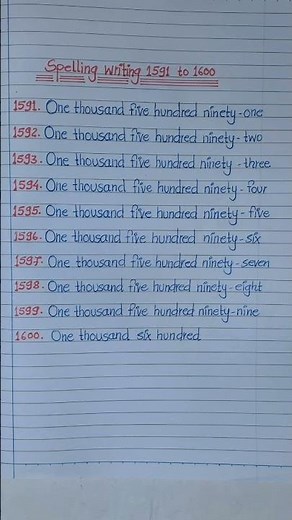 Spelling writing 1591 to 1600
1591. One thousand five hundred ninety-one
1592. One thousand five hundred ninety-two
1593. One thousand five hundred ninety-three
1594. One thousand five hundred ninety-four
1595. One thousand five hundred ninety-five
1596. One thousand five hundred ninety-six
1597. One thousand five hundred ninety-seven
1598. One thousand five hundred ninety-eight
1599. One thousand five hundred ninety-nine
1600. One thousand six hundred